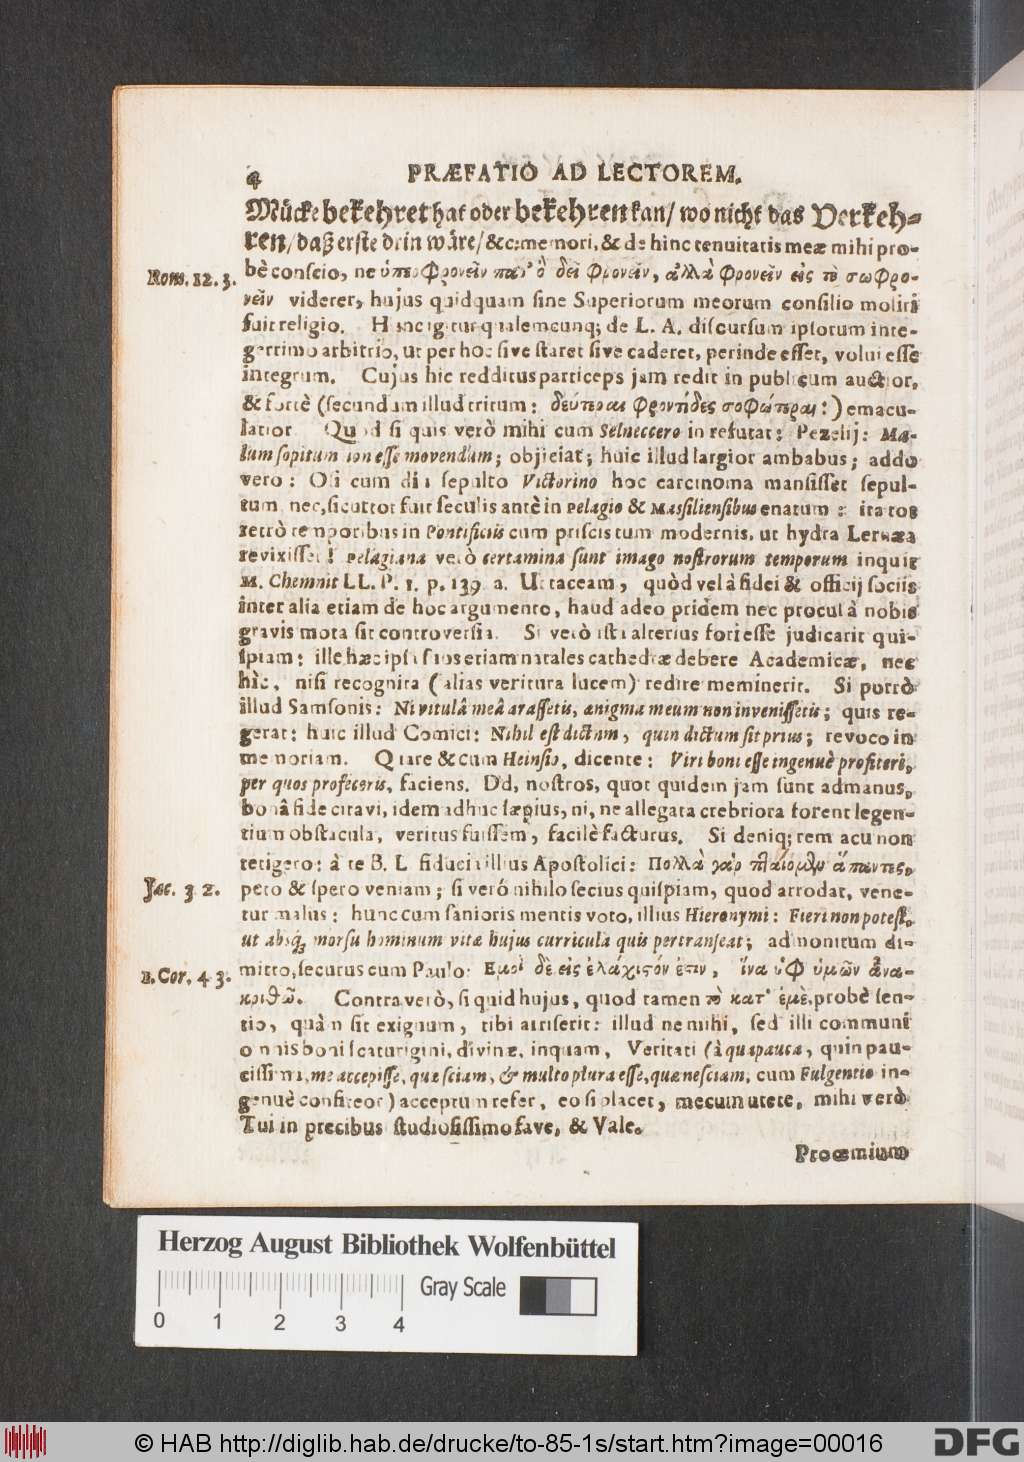 4 PRÆFATIO AD LECTOREM.
Mücke bekehret hat oder bekehren kan/ wo nicht das Verkeh-
ren/ daß erste drin wäre/ &c: memori, & de hinc tenuitatis meæ mihi pro-
Rom. 12. 3. bè conscio, ne ὑπερφρονεῖν παρ' ὃ δεῖ φρονεῖν, ἀλλὰ φρονεῖν εἰς τὸ σωφρο-
νεῖν viderer, hujus quidquam sine Superiorum meorum consilio moliri
fuit religio. Hunc igitur qualemcunq; de L. A. discursum ipsorum inte-
gerrimo arbitrio, ut per hoc sive staret sive caderet, perinde esset, volui esse
integrum. Cujus hic redditus particeps jam redit in publicum auctior,
& fortè (secundum illud tritum: δεύτεραι φροντίδες σοφώτεραι:) emacu-
latior. Quod si quis verò mihi cum Selneccero in refutat: Pezelij: Ma-
lum sopitum non esse movendum; objiciat; huic illud largior ambabus; addo
vero: O si cum diu sepulto Victorino hoc carcinoma mansisset sepul-
tum, nec, sicut tot fuit seculis antè in Pelagio & Massiliensibus enatum: ita tot
retrò temporibus in Pontificiis cum priscis tum modernis, ut hydra Lernæa
revixisset! Pelagiana verò certamina sunt imago nostrorum temporum inquit
M. Chemnit LL. P. 1. p. 139. a. Ut taceam, quòd vel à fidei & officij sociis
inter alia etiam de hoc argumento, haud adeo pridem nec procul à nobis
gravis mota sit controversia. Si verò isti alterius fori esse judicarit quis-
piam: ille hæc ipsi suos etiam natales cathedræ debere Academicæ, nec
hìc, nisi recognita (alias veritura lucem) redire meminerit. Si porrò
illud Samsonis: Ni vitulâ meâ arassetis, ænigma meum non invenissetis; quis re-
gerat: huic illud Comici: Nihil est dictum, quin dictum sit prius; revoco in
memoriam. Quare & cum Heinsio, dicente: Viri boni esse ingenuè profiteri,
per quos profeceris, faciens. Dd, nostros, quot quidem jam sunt ad manus,
bonâ fide citavi, idem adhuc sæpius, ni, ne allegata crebriora forent legen-
tium obstacula, veritus fuissem, facilè facturus. Si deniq; rem acu non
tetigero: à te B. L. fiducia illius Apostolici: Πολλὰ γὰρ πταίομϟν ἅπαντες,
Jac. 3. 2. peto & spero veniam; si veró nihilo secius quispiam, quod arrodat, vene-
tur malus: hunc cum sanioris mentis voto, illius Hieronymi: Fieri non potest,
ut absq; morsu hominum vitæ hujus curricula quis pertranseat; admonitum di-
1. Cor. 4 3. mitto, secutus cum Paulo: Εμοὶ δὲ εἰς ἐλάχιστόν ἐστιν, ἵνα ὑφ' ὑμῶν ἀνα-
κριθῶ. Contra verò, si quid hujus, quod tamen τὸ κατ' ἐμὲ, probè sen-
tio, quàm sit exiguum, tibi arriserit: illud ne mihi, sed illi communi
omnis boni scaturigini, divinæ, inquam, Veritati (à qua pauca, quin pau-
cissima, me accepisse, quæ sciam, & multo plura esse, quæ nesciam, cum Fulgentio in-
genuè confiteor) acceptum refer, eo si placet, mecum utere, mihi verò
Tui in precibus studiosissimo fave, & Vale.
Proœmium
Herzog August Bibliothek Wolfenbüttel
Gray Scale
0 1 2 3 4
© HAB http://diglib.hab.de/drucke/to-85-1s/start.htm?image=00016
DFG